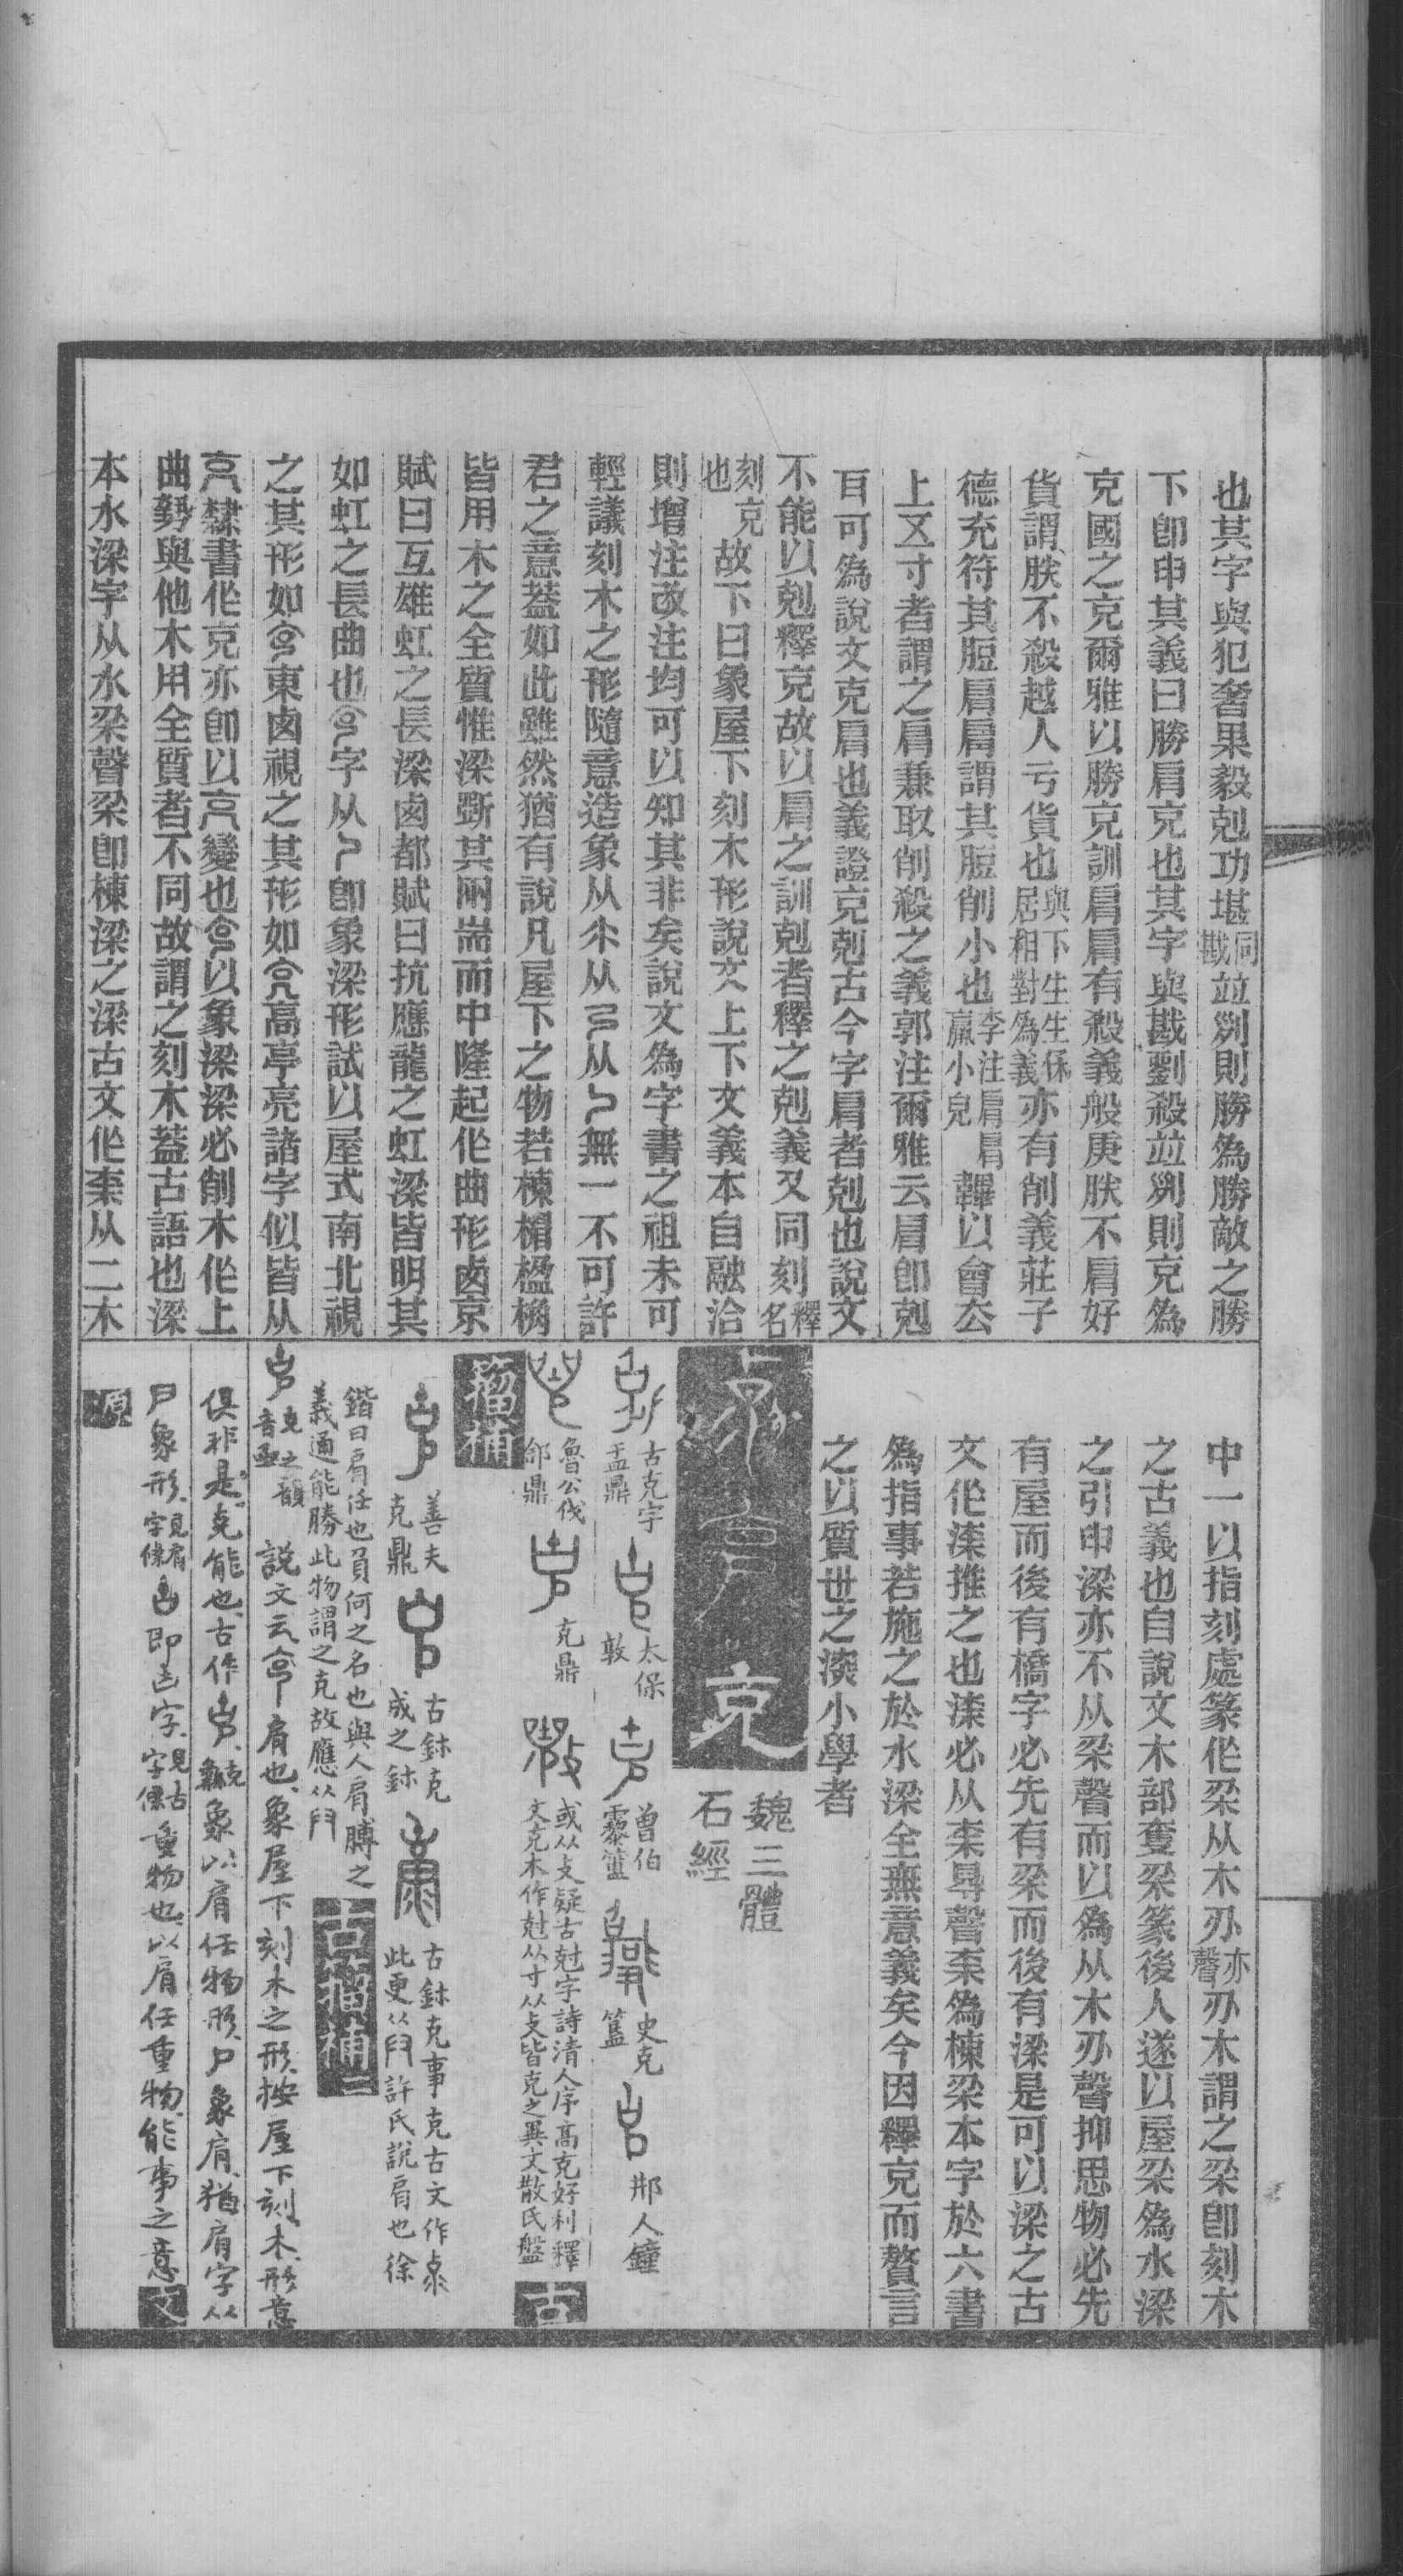 也其字與犯奢果毅剋功堪戡同竝𠛱則勝為勝敵之勝
下卽申其義曰勝肩克也其字與戡劉殺竝𠛱則克為
克國之克爾雅以勝克訓肩肩有殺義般庚朕不肩好
貨謂朕不殺越人亏貨也與下生生保居相對為義亦有削義莊子
德充符其脰肩肩謂其脰削小也李注肩肩羸小皃韗以會衣
上又寸者謂之肩兼取削殺之義郭注爾雅云肩卽剋
耳可為說文克肩也義證克剋古今字肩者剋也說文
不能以剋釋克故以肩之訓剋者釋之剋義又同刻釋名
刻克也故下曰象屋下刻木形說文上下文義本自融洽
則增注改注均可以知其非矣說文為字書之祖未可
輕議刻木之形隨意造象从 从 从 無一不可許
君之意葢如此雖然猶有說凡屋下之物若棟楣楹桷
皆用木之全質惟梁斲其兩耑而中隆起作曲形西京
賦曰亙雄虹之長梁西都賦曰抗應龍之虹梁皆明其
如虹之長曲也 字从 卽象梁形試以屋式南北視
之其形如 東西視之其形如 高亭亮諸字似皆从
隸書作克亦卽以 變也 以象梁梁必削木作上
曲勢與他木用全質者不同故謂之刻木葢古語也梁
本水梁字从水梁聲梁卽棟梁之梁古文作 从二木
中一以指刻處篆作梁从木刅亦聲刅木謂之梁卽刻木
之古義也自說文木部奪梁篆後人遂以屋梁為水梁
之引申梁亦不从梁聲而以為从木刅聲抑思物必先
有屋而後有橋字必先有梁而後有梁是可以梁之古
文作 推之也 必从 㝵聲 為棟梁本字於六書
為指事若施之於水梁全無意義矣今因釋克而贅言
之以質世之深小學者
克
魏三體石經
古克字盂鼎
太保敦
曾伯霥簠
史克簋
邢人鐘
魯公伐郃鼎
克鼎
或从攴疑古尅字詩清人序高克好利釋文克本作尅从寸从攴皆克之異文散氏盤
古籀補
善夫克鼎
古鉢克成之鉢
古鉢克事克古文作 此更从 許氏說肩也徐
鍇曰肩任也負何之名也與人肩膊之義通能勝此物謂之克故應从
古籀補
說文云 肩也象屋下刻木之形按屋下刻木形意
俱非是克能也古作 象以肩任物形尸象肩猶肩字从
尸象形見肩字條 即古字見古字條重物也以肩任重物能事之意